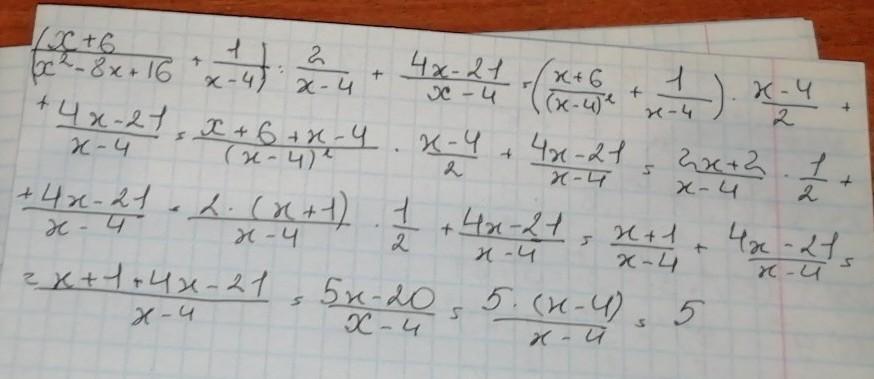 ((x+6)/(x²-8x+16) + 1/(x-4)) : 2/(x-4) + (4x-21)/(x-4) = ((x+6)/(x-4)² + 1/(x-4)) · (x-4)/2 +
+ (4x-21)/(x-4) = (x+6+x-4)/(x-4)² · (x-4)/2 + (4x-21)/(x-4) = (2x+2)/(x-4) · 1/2 +
+ (4x-21)/(x-4) = (2·(x+1))/(x-4) · 1/2 + (4x-21)/(x-4) = (x+1)/(x-4) + (4x-21)/(x-4) =
= (x+1+4x-21)/(x-4) = (5x-20)/(x-4) = (5·(x-4))/(x-4) = 5